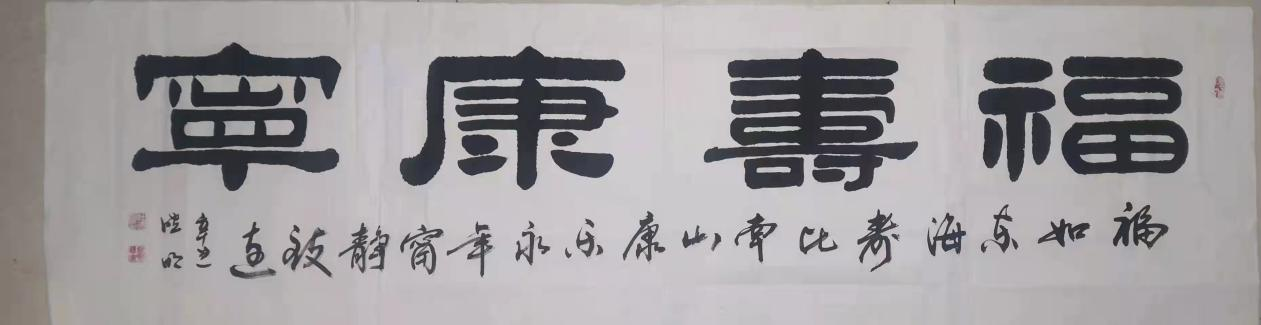 福壽康寧
福如东海寿比南山康乐永年甯静致远
辛丑